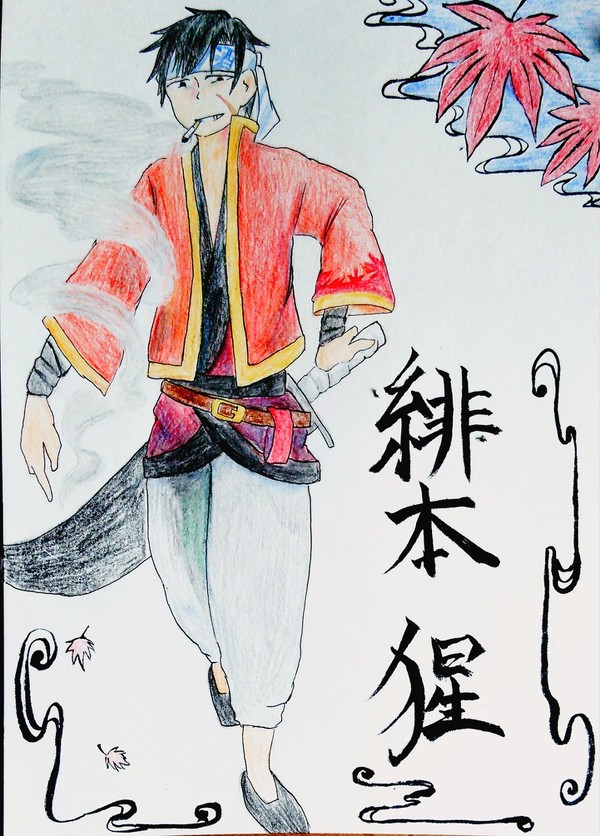 緋本 猩